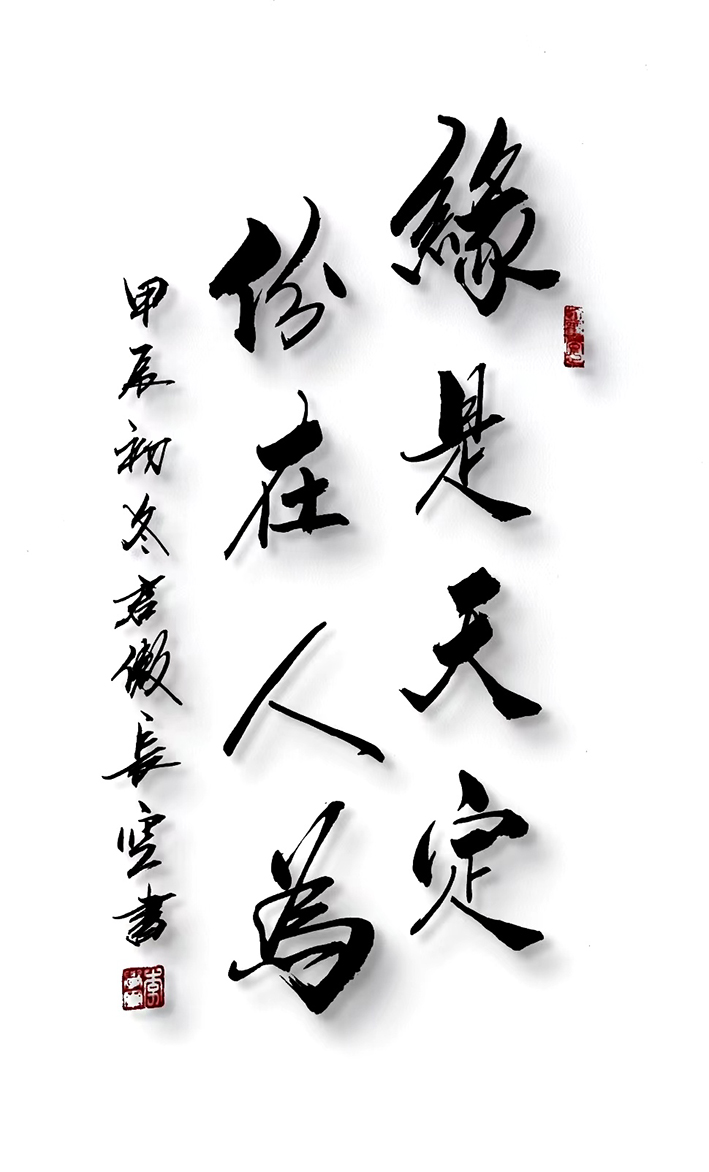 緣是天定
份在人為
甲辰初冬君傲長空書